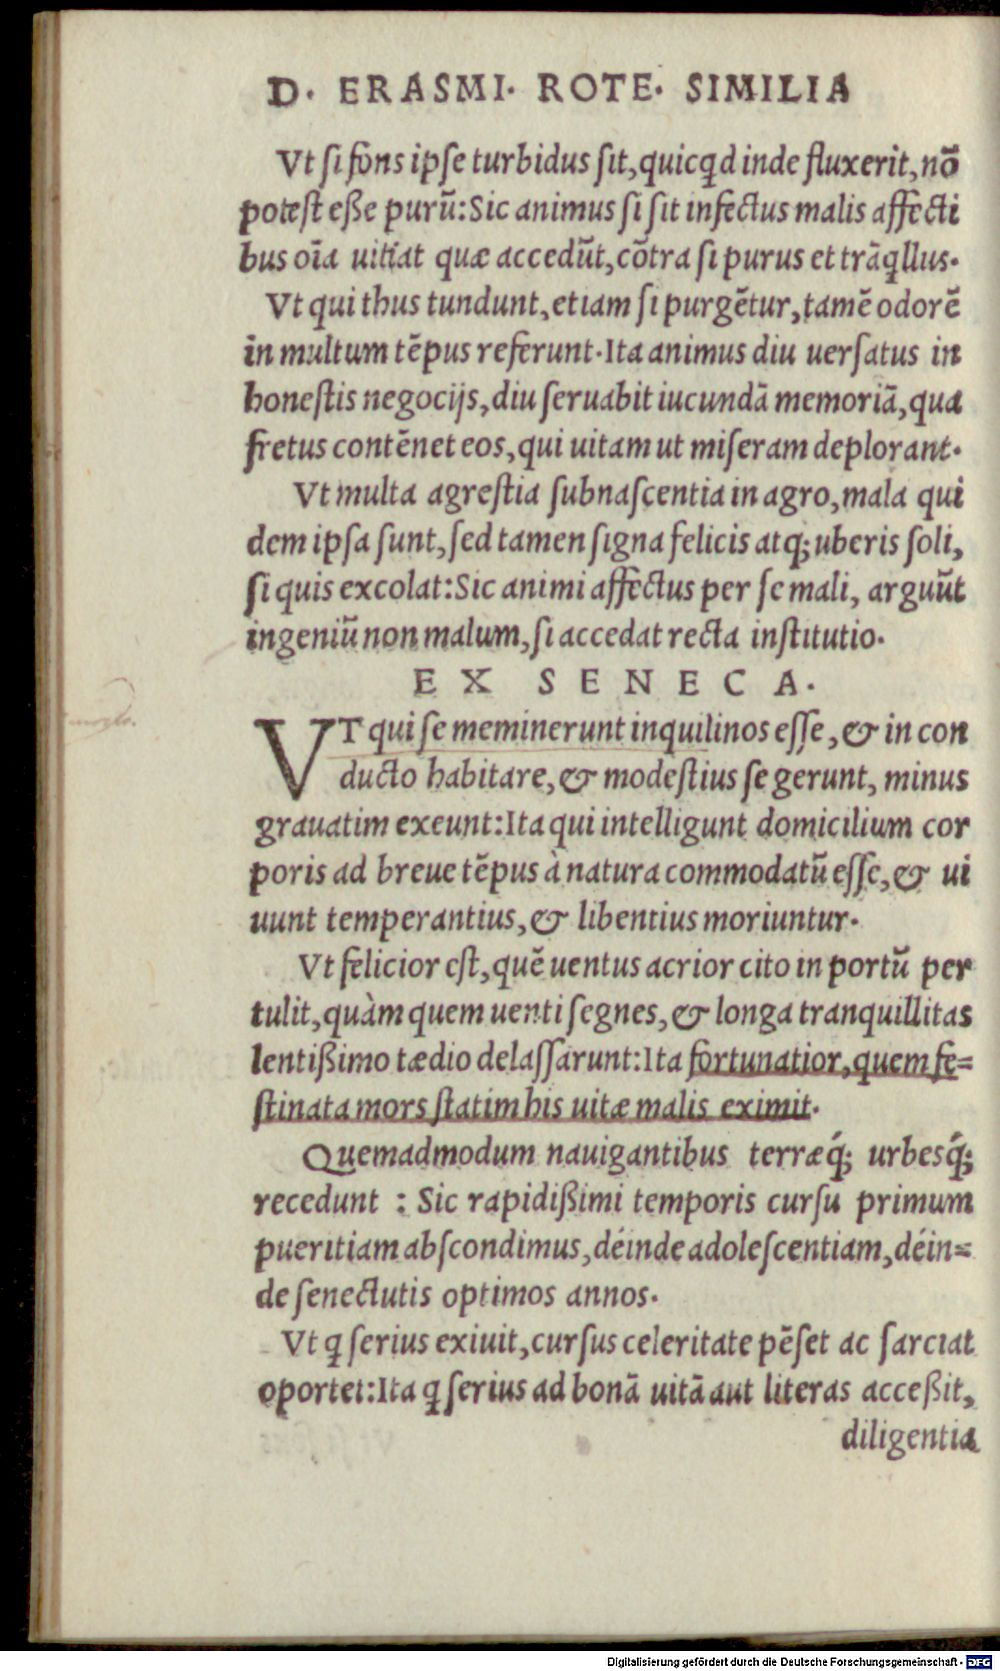 D. ERASMI. ROTE. SIMILIA
Vt si fons ipse turbidus sit, quicqd inde fluxerit, nō
potest eße purū: Sic animus si sit infectus malis affecti
bus oīa uitiat quæ accedūt, cōtra si purus et trāqllus.
Vt qui thus tundunt, etiam si purgētur, tamē odorē
in multum tēpus referunt. Ita animus diu uersatus in
honestis negocijs, diu seruabit iucundā memoriā, qua
fretus contēnet eos, qui uitam ut miseram deplorant.
Vt multa agrestia subnascentia in agro, mala qui
dem ipsa sunt, sed tamen signa felicis atq; uberis soli,
si quis excolat: Sic animi affectus per se mali, arguūt
ingeniū non malum, si accedat recta institutio.
EX SENECA.
VT qui se meminerunt inquilinos esse, & in con
ducto habitare, & modestius se gerunt, minus
grauatim exeunt: Ita qui intelligunt domicilium cor
poris ad breue tēpus à natura commodatū esse, & ui
uunt temperantius, & libentius moriuntur.
Vt felicior est, quē uentus acrior cito in portū per
tulit, quàm quem uenti segnes, & longa tranquillitas
lentißimo tædio delassarunt: Ita fortunatior, quem fe=
stinata mors statim his uitæ malis eximit.
Quemadmodum nauigantibus terræq́; urbesq́;
recedunt : Sic rapidißimi temporis cursu primum
pueritiam abscondimus, déinde adolescentiam, déin=
de senectutis optimos annos.
Vt q serius exiuit, cursus celeritate pēset ac sarciat
oportet: Ita q serius ad bonā uitā aut literas acceßit,
diligentia
Digitalisierung gefördert durch die Deutsche Forschungsgemeinschaft - DFG